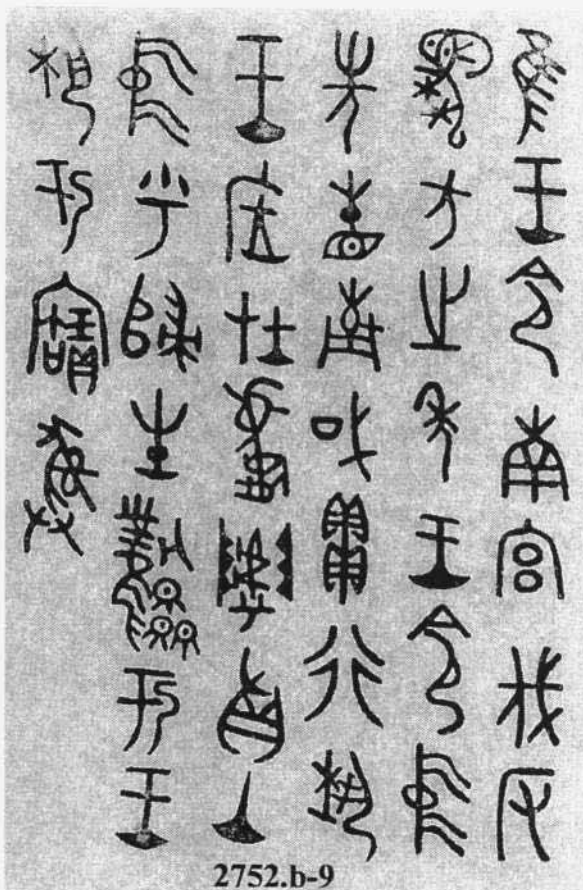 隹王令南宮伐反
虎方之年王令中
先省南或貫行埶
王应在夔𨺅真山
中乎歸生鳳于王
埶于寶彝
2752.b-9